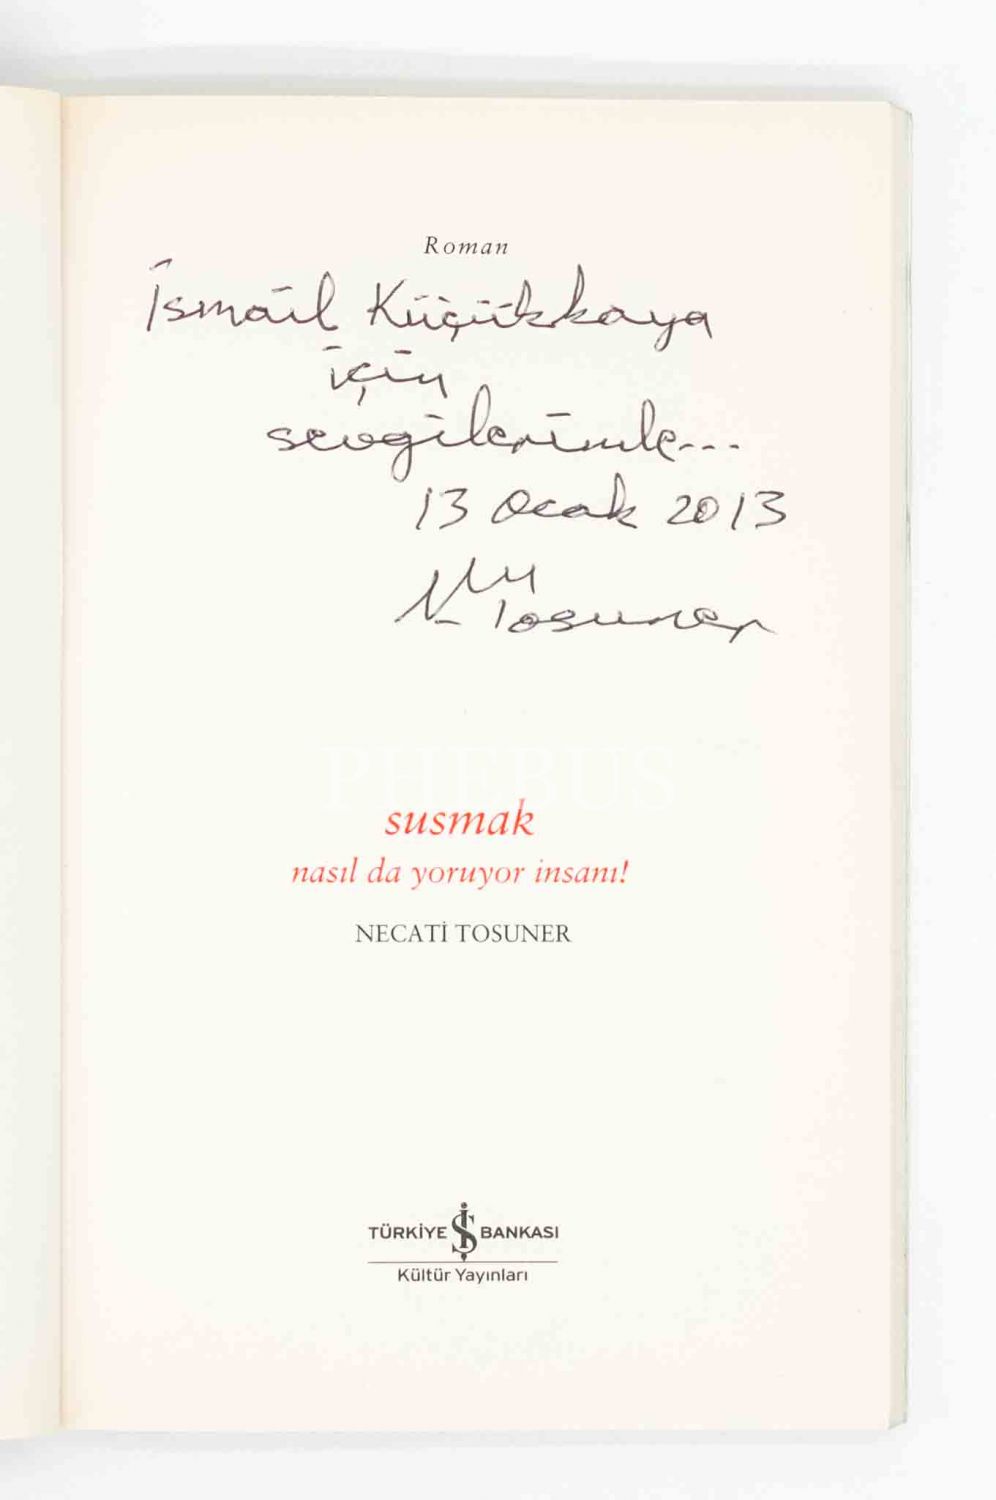 Roman
İsmail Küçükkaya
için
sevgilerimle...
13 Ocak 2013
N. Tosuner
PHEBUS
susmak
nasıl da yoruyor insanı!
NECATİ TOSUNER
TÜRKİYE İŞ BANKASI
Kültür Yayınları